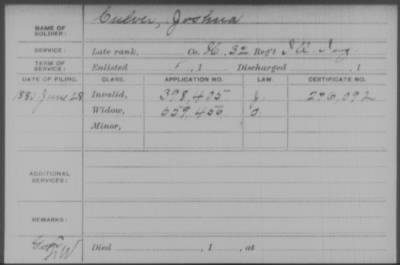 Culver, Joshua
NAME OF SOLDIER:
SERVICE: Late rank, Co. , 32 Reg't Ill. Inf.
TERM OF SERVICE: Enlisted , 1 Discharged , 1
DATE OF FILING. CLASS. APPLICATION NO. LAW. CERTIFICATE NO.
1880 June 28 Invalid, 398,405
Widow, 659,456
Minor,
ADDITIONAL SERVICES:
REMARKS:
Died , 1 , at